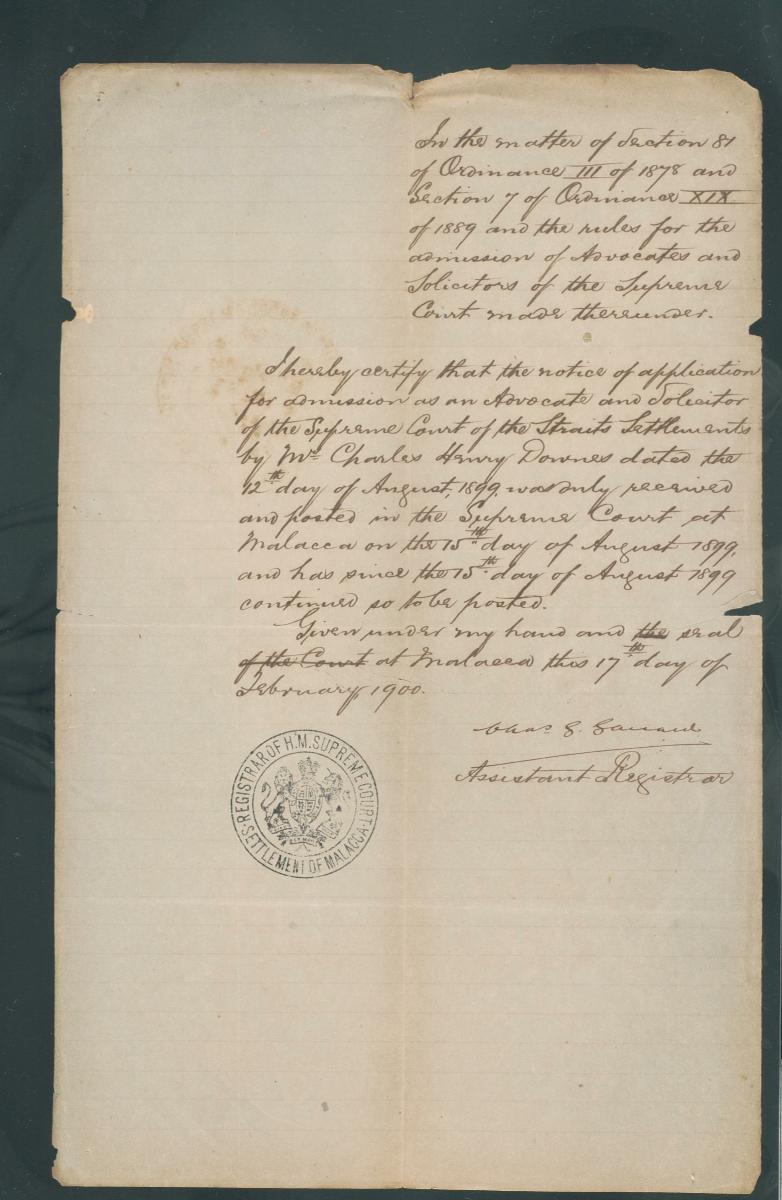 In the matter of Section 81
of Ordinance III of 1878 and
Section 7 of Ordinance XIX
of 1889 and the rules for the
admission of Advocates and
Solicitors of the Supreme
Court made thereunder.
I hereby certify that the notice of application
for admission as an Advocate and Solicitor
of the Supreme Court of the Straits Settlements
by Mr. Charles Henry Downes dated the
12th day of August, 1899, was duly received
and posted in the Supreme Court at
Malacca on the 15th day of August 1899,
and has since the 15th day of August 1899
continued so to be posted.
Given under my hand and the seal
of the Court at Malacca this 17th day of
February, 1900.
Chas. G.
Assistant Registrar
REGISTRAR OF H.M. SUPREME COURT
SETTLEMENT OF MALACCA